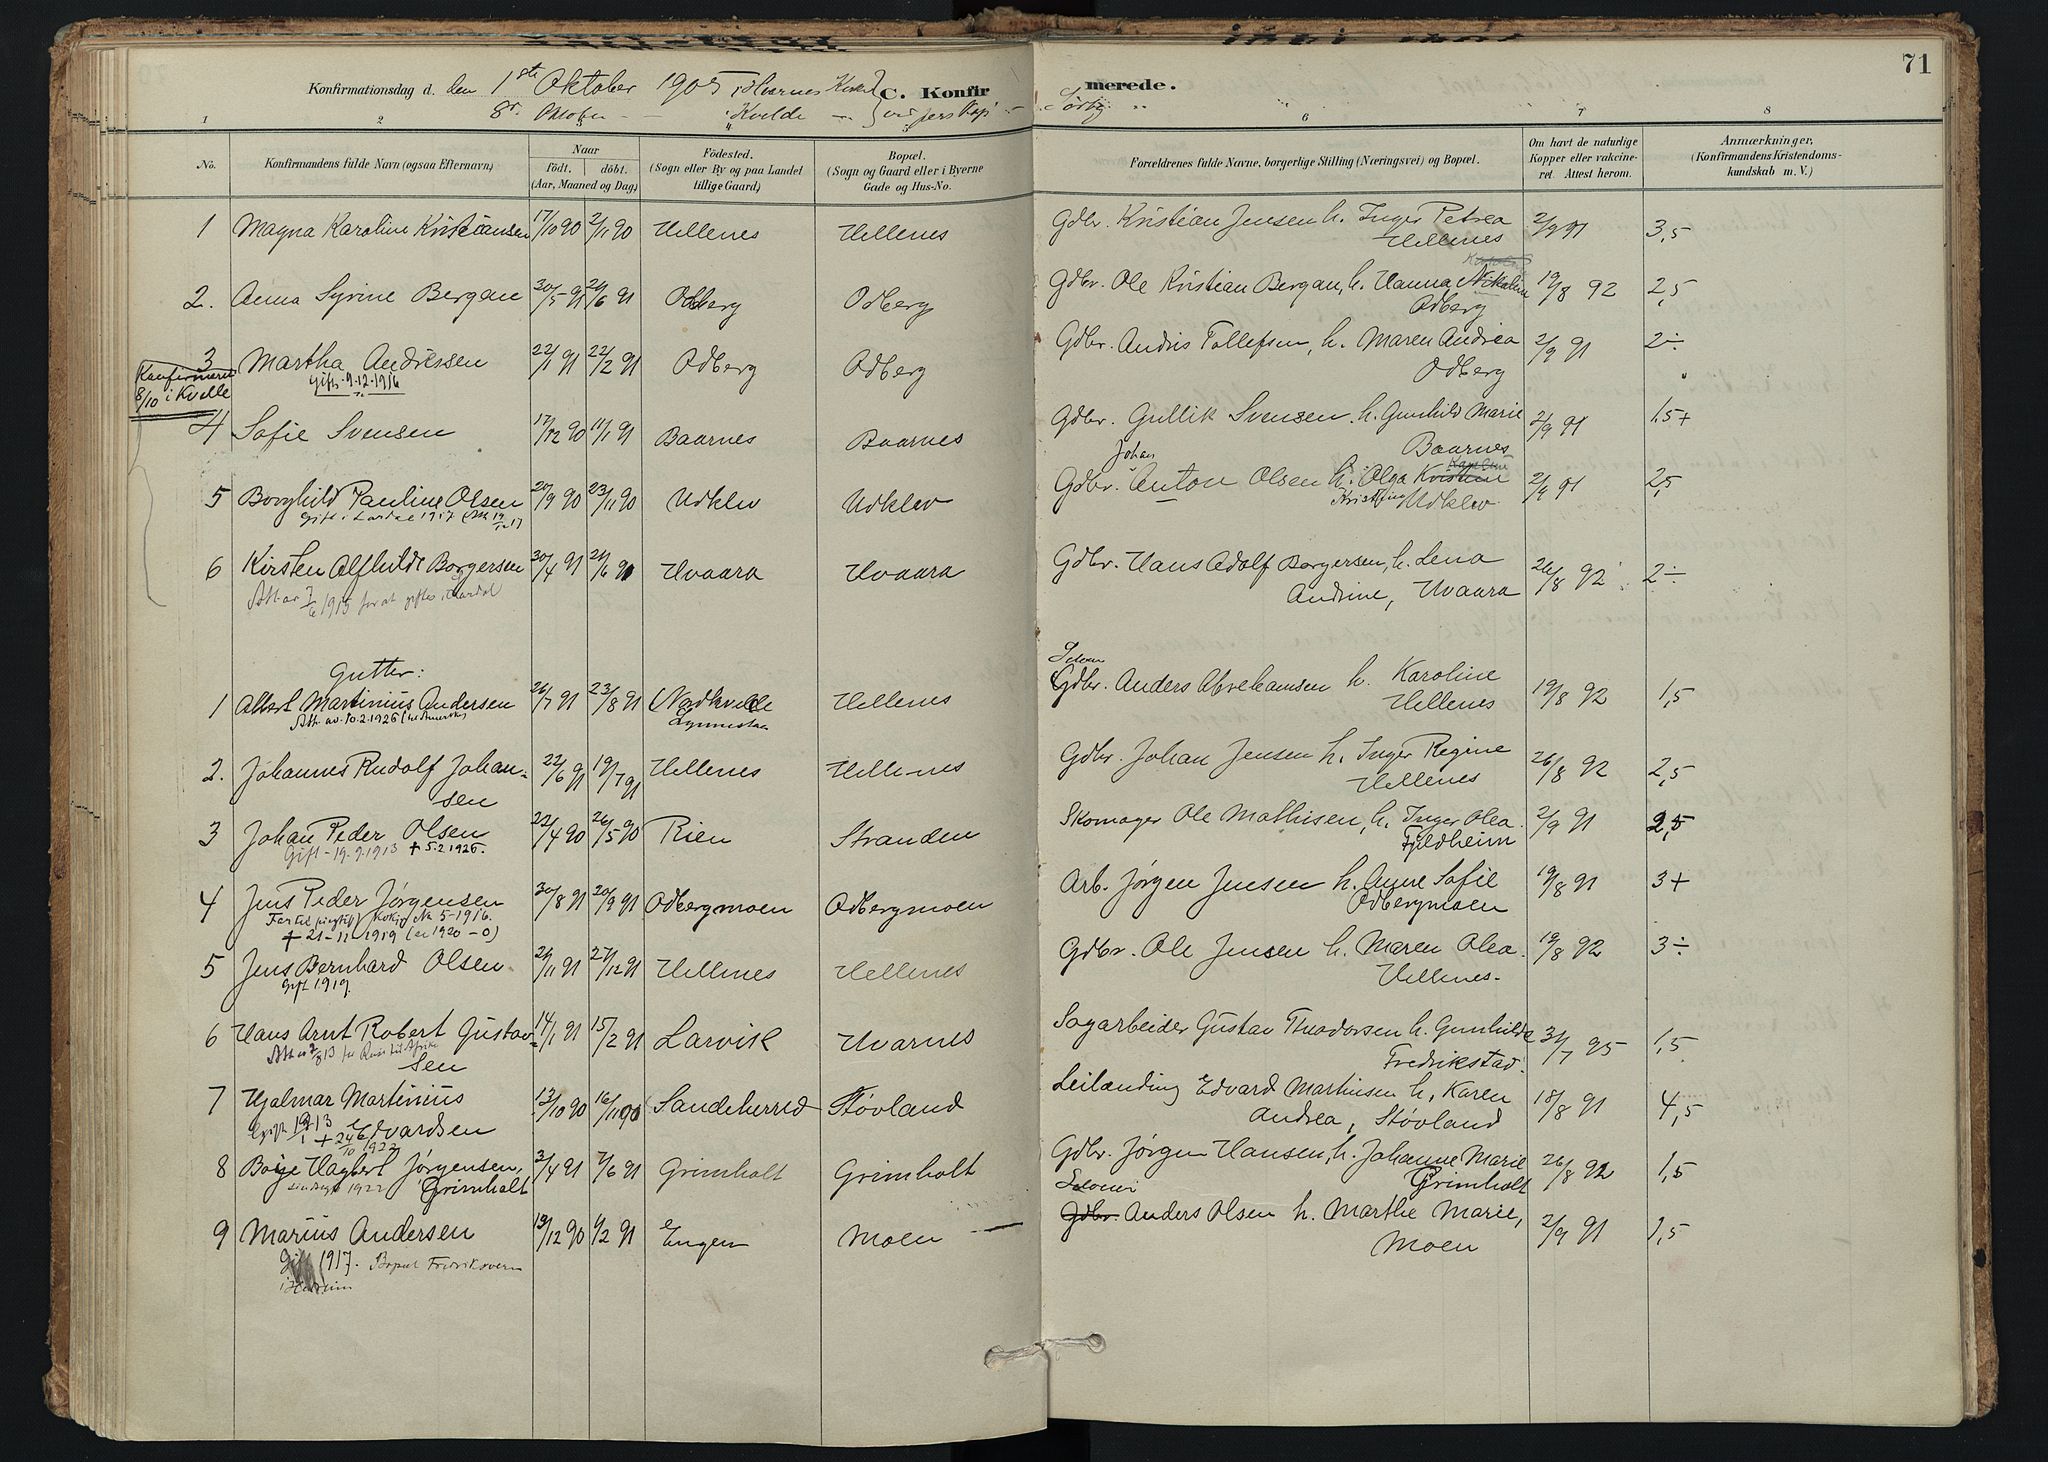 71
Konfirmationsdag d. den 1ste Oktober 1905 i Hvarnes Kirke C. Konfirmerede.
8de Oktober — " Kvelde —
1 2 3 4 5 6 7 8
No. Konfirmandens fulde Navn (ogsaa Efternavn) Naar Födt. döbt. (Aar, Maaned og Dag) Födested. (Sogn eller By og paa Landet tillige Gaard) Bopæl. (Sogn og Gaard eller i Byerne Gade og Hus-No. Forældrenes fulde Navne, borgerlige Stilling (Næringsvei) og Bopæl. Om havt de naturlige Kopper eller vakcineret. Attest herom. Anmærkninger. (Konfirmandens Kristendomskundskab m. V.)
1 Magna Karoline Kristiansen 17/10 90 2/11 90 Hellenes Hellenes Gdbr. Kristian Jensen h. Inger Petrea Hellenes 2/9 91 3,5
2. Anna Syrine Bergan 30/5 91 21/6 91 Odberg Odberg Gdbr. Ole Kristian Bergan, h. Hanna Nikoline Odberg 19/8 92 2,5
3 Martha Andressen 22/1 91 22/2 91 Odberg Odberg Gdbr. Andris Tollefsen, h. Maren Andrea Odberg 2/9 91 2÷
Gift 9-12-1916
Konfirmeret 8/10 i Kvelle
4 Sofie Svensen 17/12 90 11/1 91 Baarnes Baarnes Gdbr. Gullik Svensen h. Gunhild Marie Baarnes 2/9 91 1,5+
5 Borghild Pauline Olsen 20/9 90 23/11 90 Udklev Udklev Gdbr. Johan Anton Olsen h. Olga Kristine Udklev 2/9 91 2,5
Gift i Lardal 1917
6 Kirsten Alfhilde Borgersen 30/4 91 21/6 91 Hvaara Hvaara Gdbr. Hans Adolf Borgersen, h. Lena Andrine, Hvaara 26/8 92 2÷
Att. av 7/6 1915 for at giftes i Lardal
Gutter:
1 Albert Martinius Andersen 26/7 91 23/8 91 Nordkvelle Hellenes Gdbr. Anders Abrahamsen h. Karoline Hellenes 19/8 92 1,5
Att. av 10.2.1926
2. Johannes Rudolf Johansen 22/6 91 19/7 91 Hellenes Hellenes Gdbr. Johan Jensen h. Inger Regine Hellenes 26/8 92 2,5
3 Johan Peder Olsen 22/4 90 26/5 90 Rien Stranden Skomager Ole Mathisen, h. Inger Olea Fjeldheim 2/9 91 2,5
Gift - 19.9.1913 + 5.2.1926.
4 Jens Peder Jörgensen 30/8 91 20/9 91 Odbergmoen Odbergmoen Arb. Jörgen Jensen h. Anne Sofie Odbergmoen 19/8 91 3+
+ 21-11-1919
5 Jens Bernhard Olsen 21/11 91 27/12 91 Hellenes Hellenes Gdbr. Ole Jensen h. Maren Olea Hellenes. 19/8 92 3÷
Gift 1919
6 Hans Arnt Robert Gustavsen 14/1 91 15/2 91 Larvik Hvarnes Sagarbeider Gustav Theodorsen h. Gunhilde Fredrikstad 31/7 95 1,5
7 Hjalmar Martinius Edvardsen 13/10 90 16/11 90 Sandeherred Stövland Leilænding Edvard Martinsen h. Karen Andrea, Stövland 18/8 91 4,5
8 Borge Hagbert Jörgensen, Grimholt 3/4 91 7/6 91 Grimholt Grimholt Gdbr. Jörgen Hansen, h. Johanne Marie Grimholt 26/8 92 1,5
9 Marius Andersen 19/12 90 1/2 91 Engen Moen Gdbr. Anders Olsen h. Marthe Marie, Moen 2/9 91 1,5
Gift 1917. Bopæl Fredriksvern